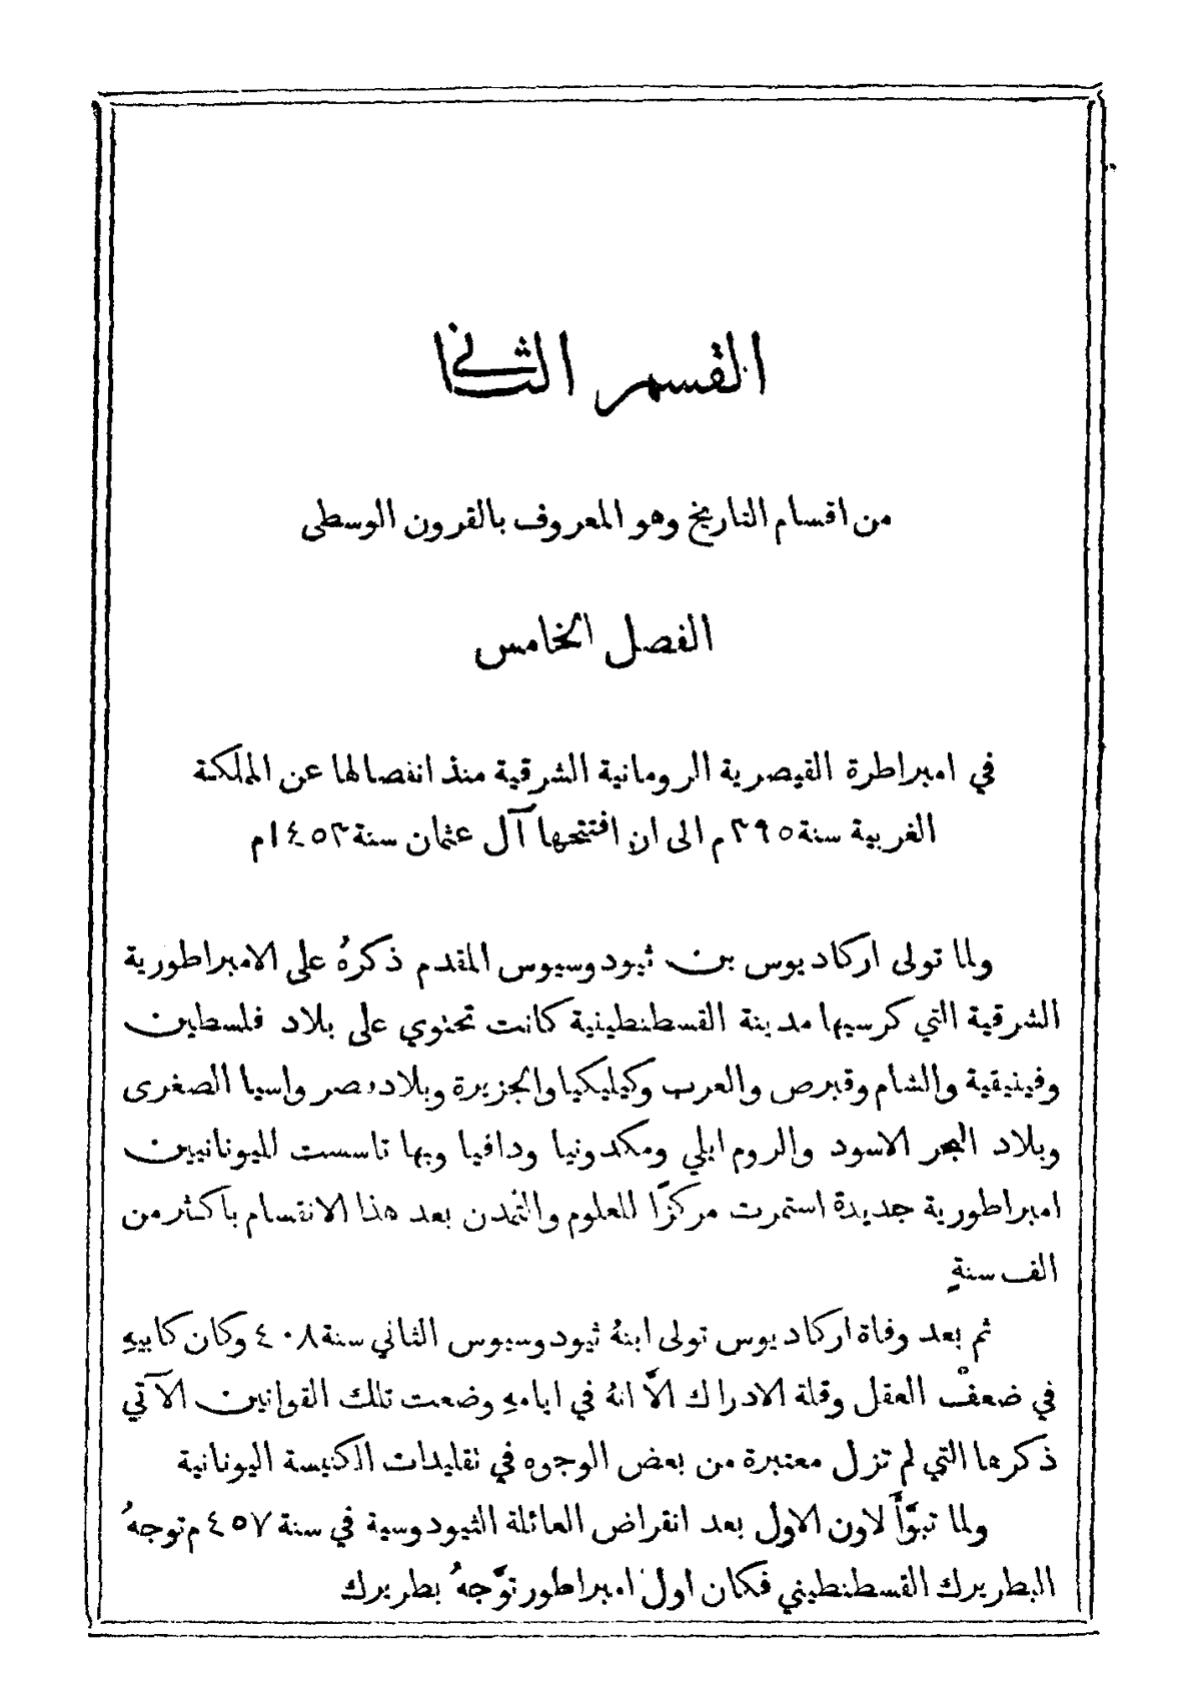 القسم الثاني
من اقسام التاريخ وهو المعروف بالقرون الوسطى
الفصل الخامس
في امبراطرة القيصرية الرومانية الشرقية منذ انفصالها عن المملكة
الغربية سنة ٣٩٥ م الى ان افتتحها آل عثمان سنة ١٤٥٣م
ولما تولى اركاديوس بن ثيودوسيوس المقدم ذكرهُ على الامبراطورية
الشرقية التي كرسيها مدينة القسطنطينية كانت تحتوي على بلاد فلسطين
وفينيقية والشام وقبرص والعرب وكيليكيا والجزيرة وبلاد مصر واسيا الصغرى
وبلاد البحر الاسود والروم ايلي ومكدونيا ودافيا وبها تاسست لليونانيين
امبراطورية جديدة استمرت مركزًا للعلوم والتمدن بعد هذا الانقسام باكثر من
الف سنةٍ
ثم بعد وفاة اركاديوس تولى ابنهُ ثيودوسيوس الثاني سنة ٤٠٨ وكان كابيهِ
في ضعف العقل وقلة الادراك الاَّ انهُ في ايامهِ وضعت تلك القوانين الآتي
ذكرها التي لم تزل معتبرة من بعض الوجوه في تقليدات الكنيسة اليونانية
ولما تبوَّأ لاون الاول بعد انقراض العائلة الثيودوسية في سنة ٤٥٧ م توجهُ
البطريرك القسطنطيني فكان اول امبراطور توَّجهُ بطريرك